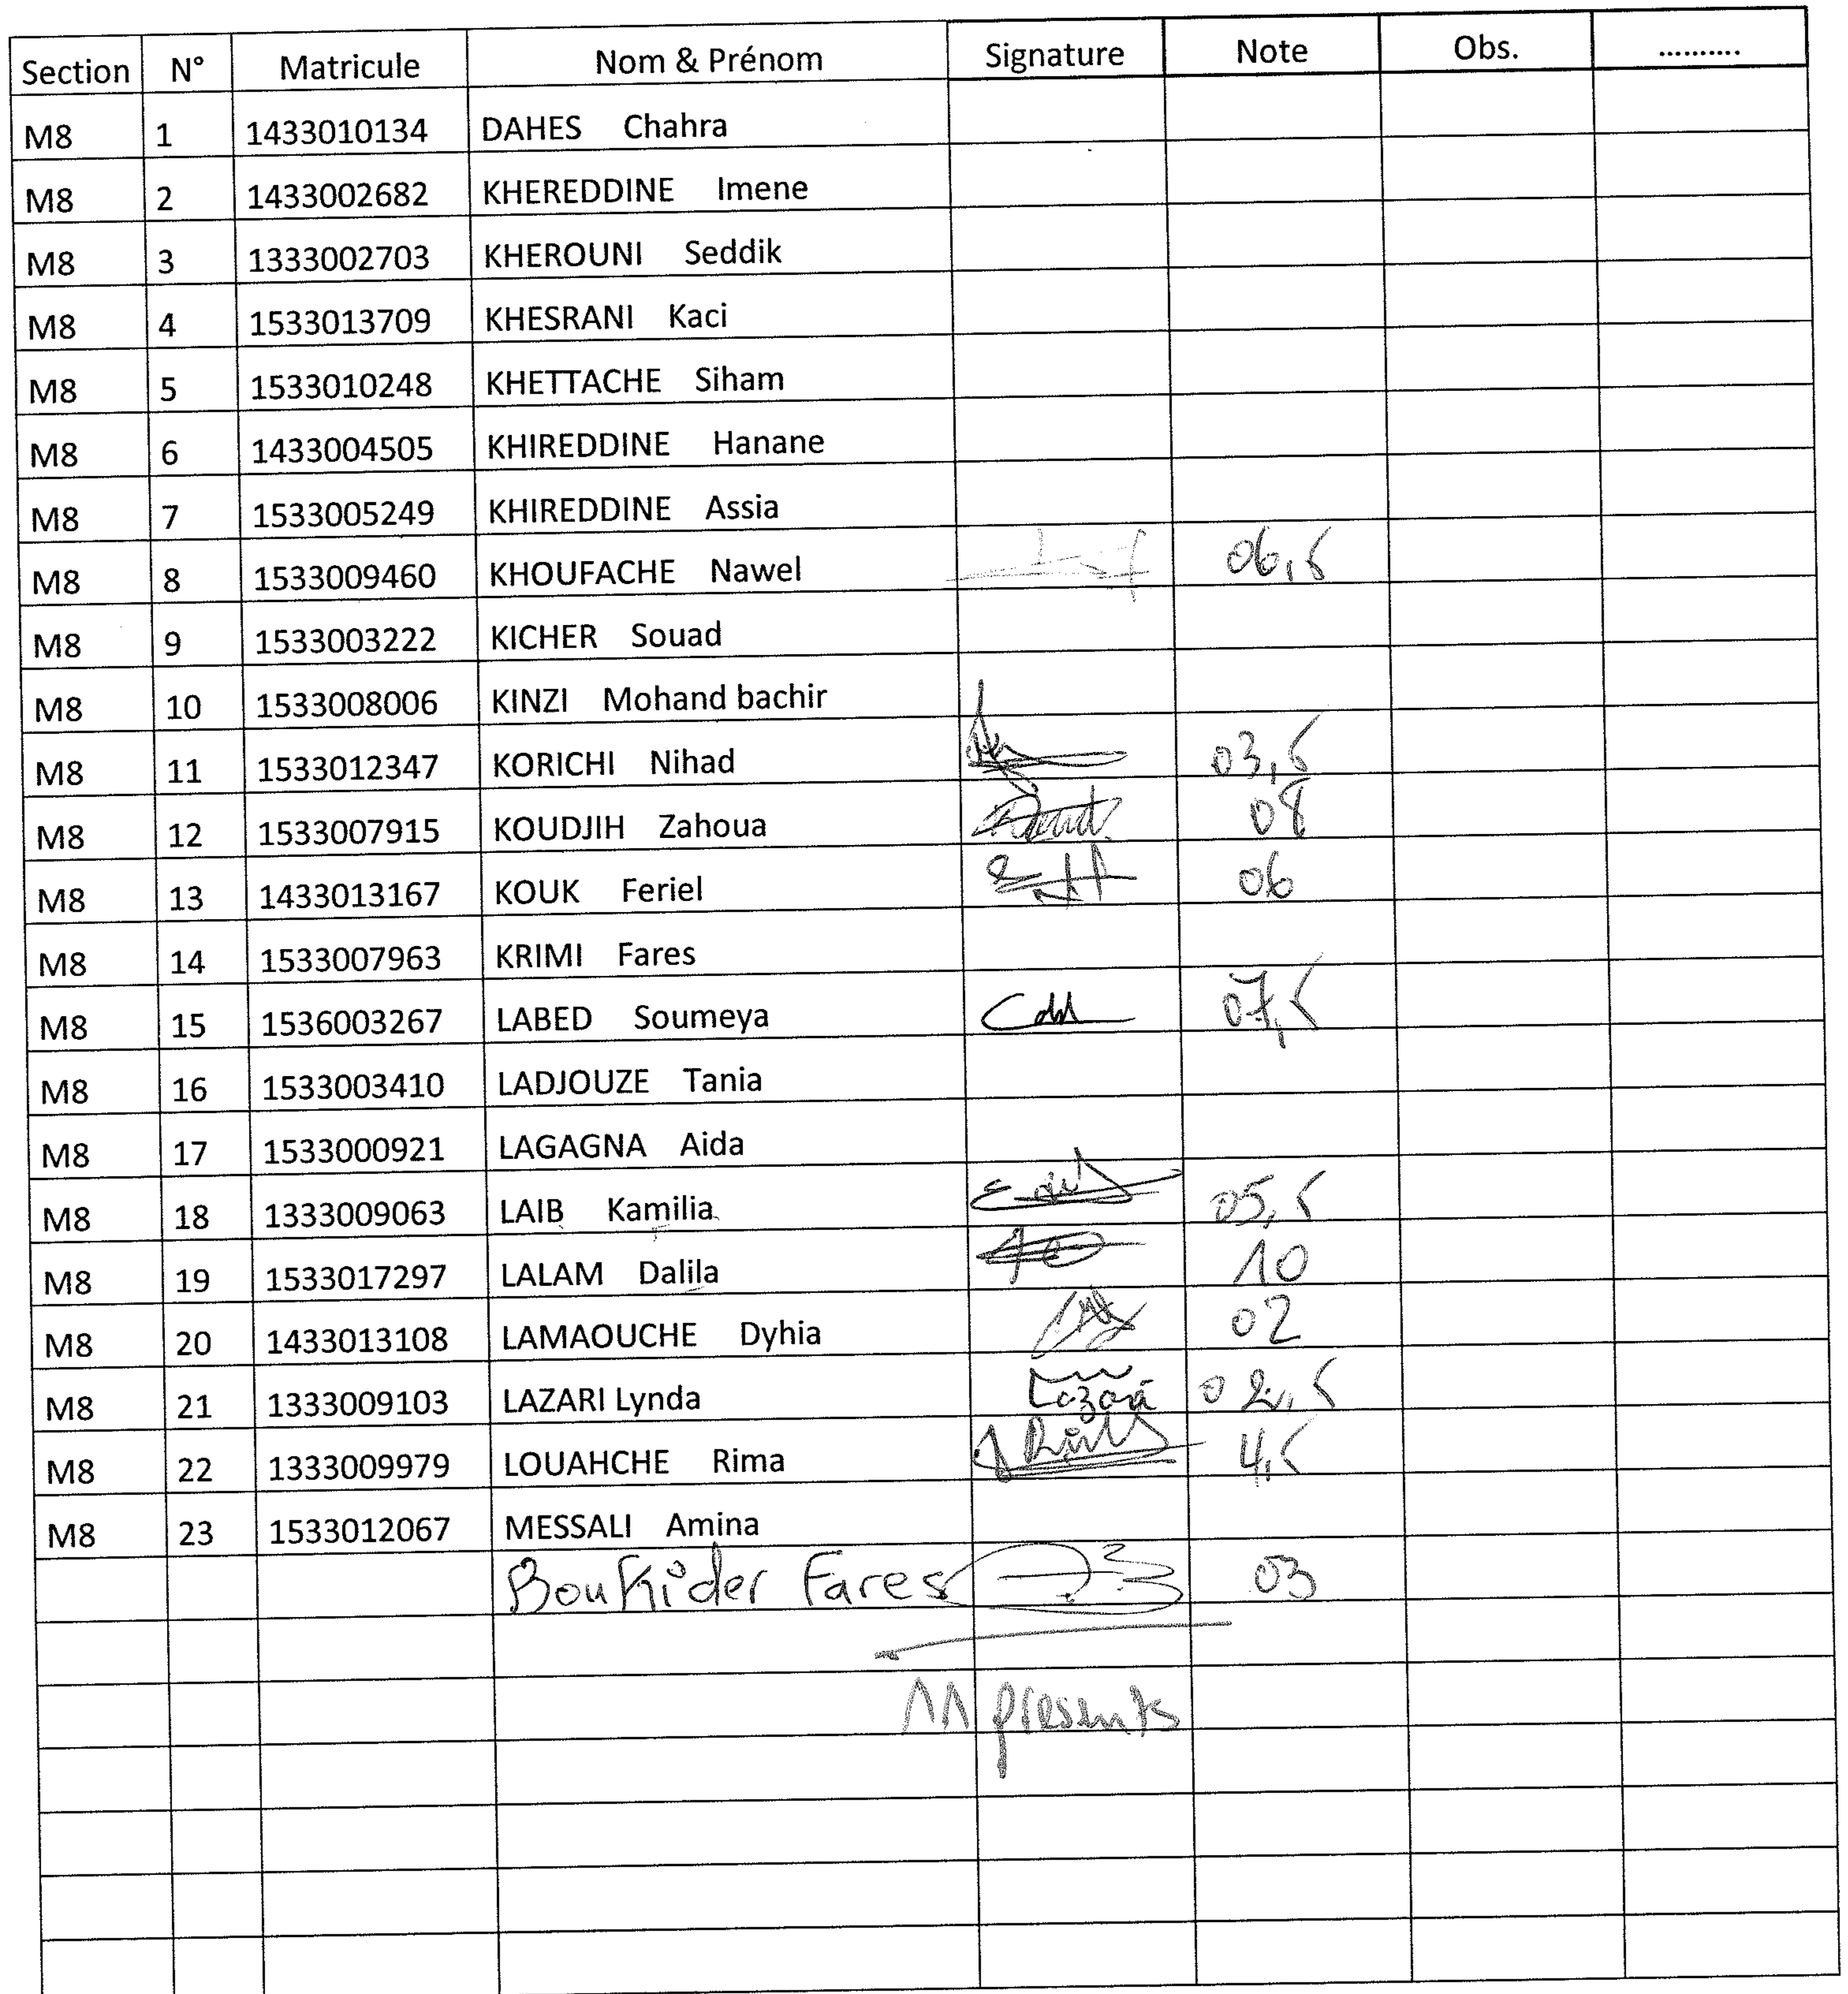 Section N° Matricule Nom & Prénom Signature Note Obs. ..........
M8 1 1433010134 DAHES Chahra
M8 2 1433002682 KHEREDDINE Imene
M8 3 1333002703 KHEROUNI Seddik
M8 4 1533013709 KHESRANI Kaci
M8 5 1533010248 KHETTACHE Siham
M8 6 1433004505 KHIREDDINE Hanane
M8 7 1533005249 KHIREDDINE Assia
M8 8 1533009460 KHOUFACHE Nawel 06,5
M8 9 1533003222 KICHER Souad
M8 10 1533008006 KINZI Mohand bachir
M8 11 1533012347 KORICHI Nihad 03,5
M8 12 1533007915 KOUDJIH Zahoua 08
M8 13 1433013167 KOUK Feriel 06
M8 14 1533007963 KRIMI Fares
M8 15 1536003267 LABED Soumeya 07,5
M8 16 1533003410 LADJOUZE Tania
M8 17 1533000921 LAGAGNA Aida
M8 18 1333009063 LAIB Kamilia 05,5
M8 19 1533017297 LALAM Dalila 10
M8 20 1433013108 LAMAOUCHE Dyhia 02
M8 21 1333009103 LAZARI Lynda 02,5
M8 22 1333009979 LOUAHCHE Rima 4,5
M8 23 1533012067 MESSALI Amina
BouKider Fares 03
11 presents